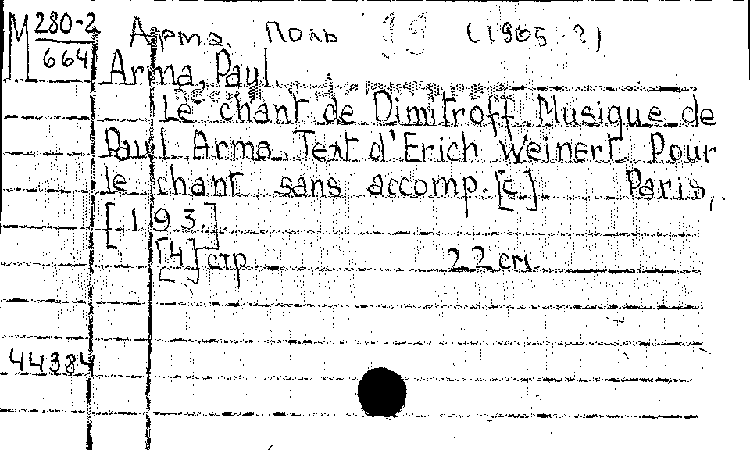 М 280-2
664
Арма, Поль (1905-?)
Arma, Paul.
Le chant de Dimitroff. Musique de
Paul Arma. Text d'Erich Weinert. Pour
le chant sans accomp. [c]. Paris,
[193.]
[4] стр 22 см
44384